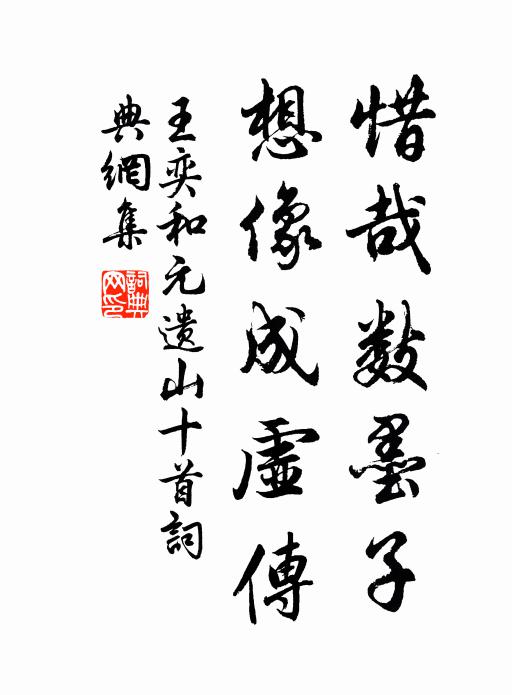 惜哉数墨子
想像成虛傳
王奕和元遺山十首詞
典網集
詞典
网印